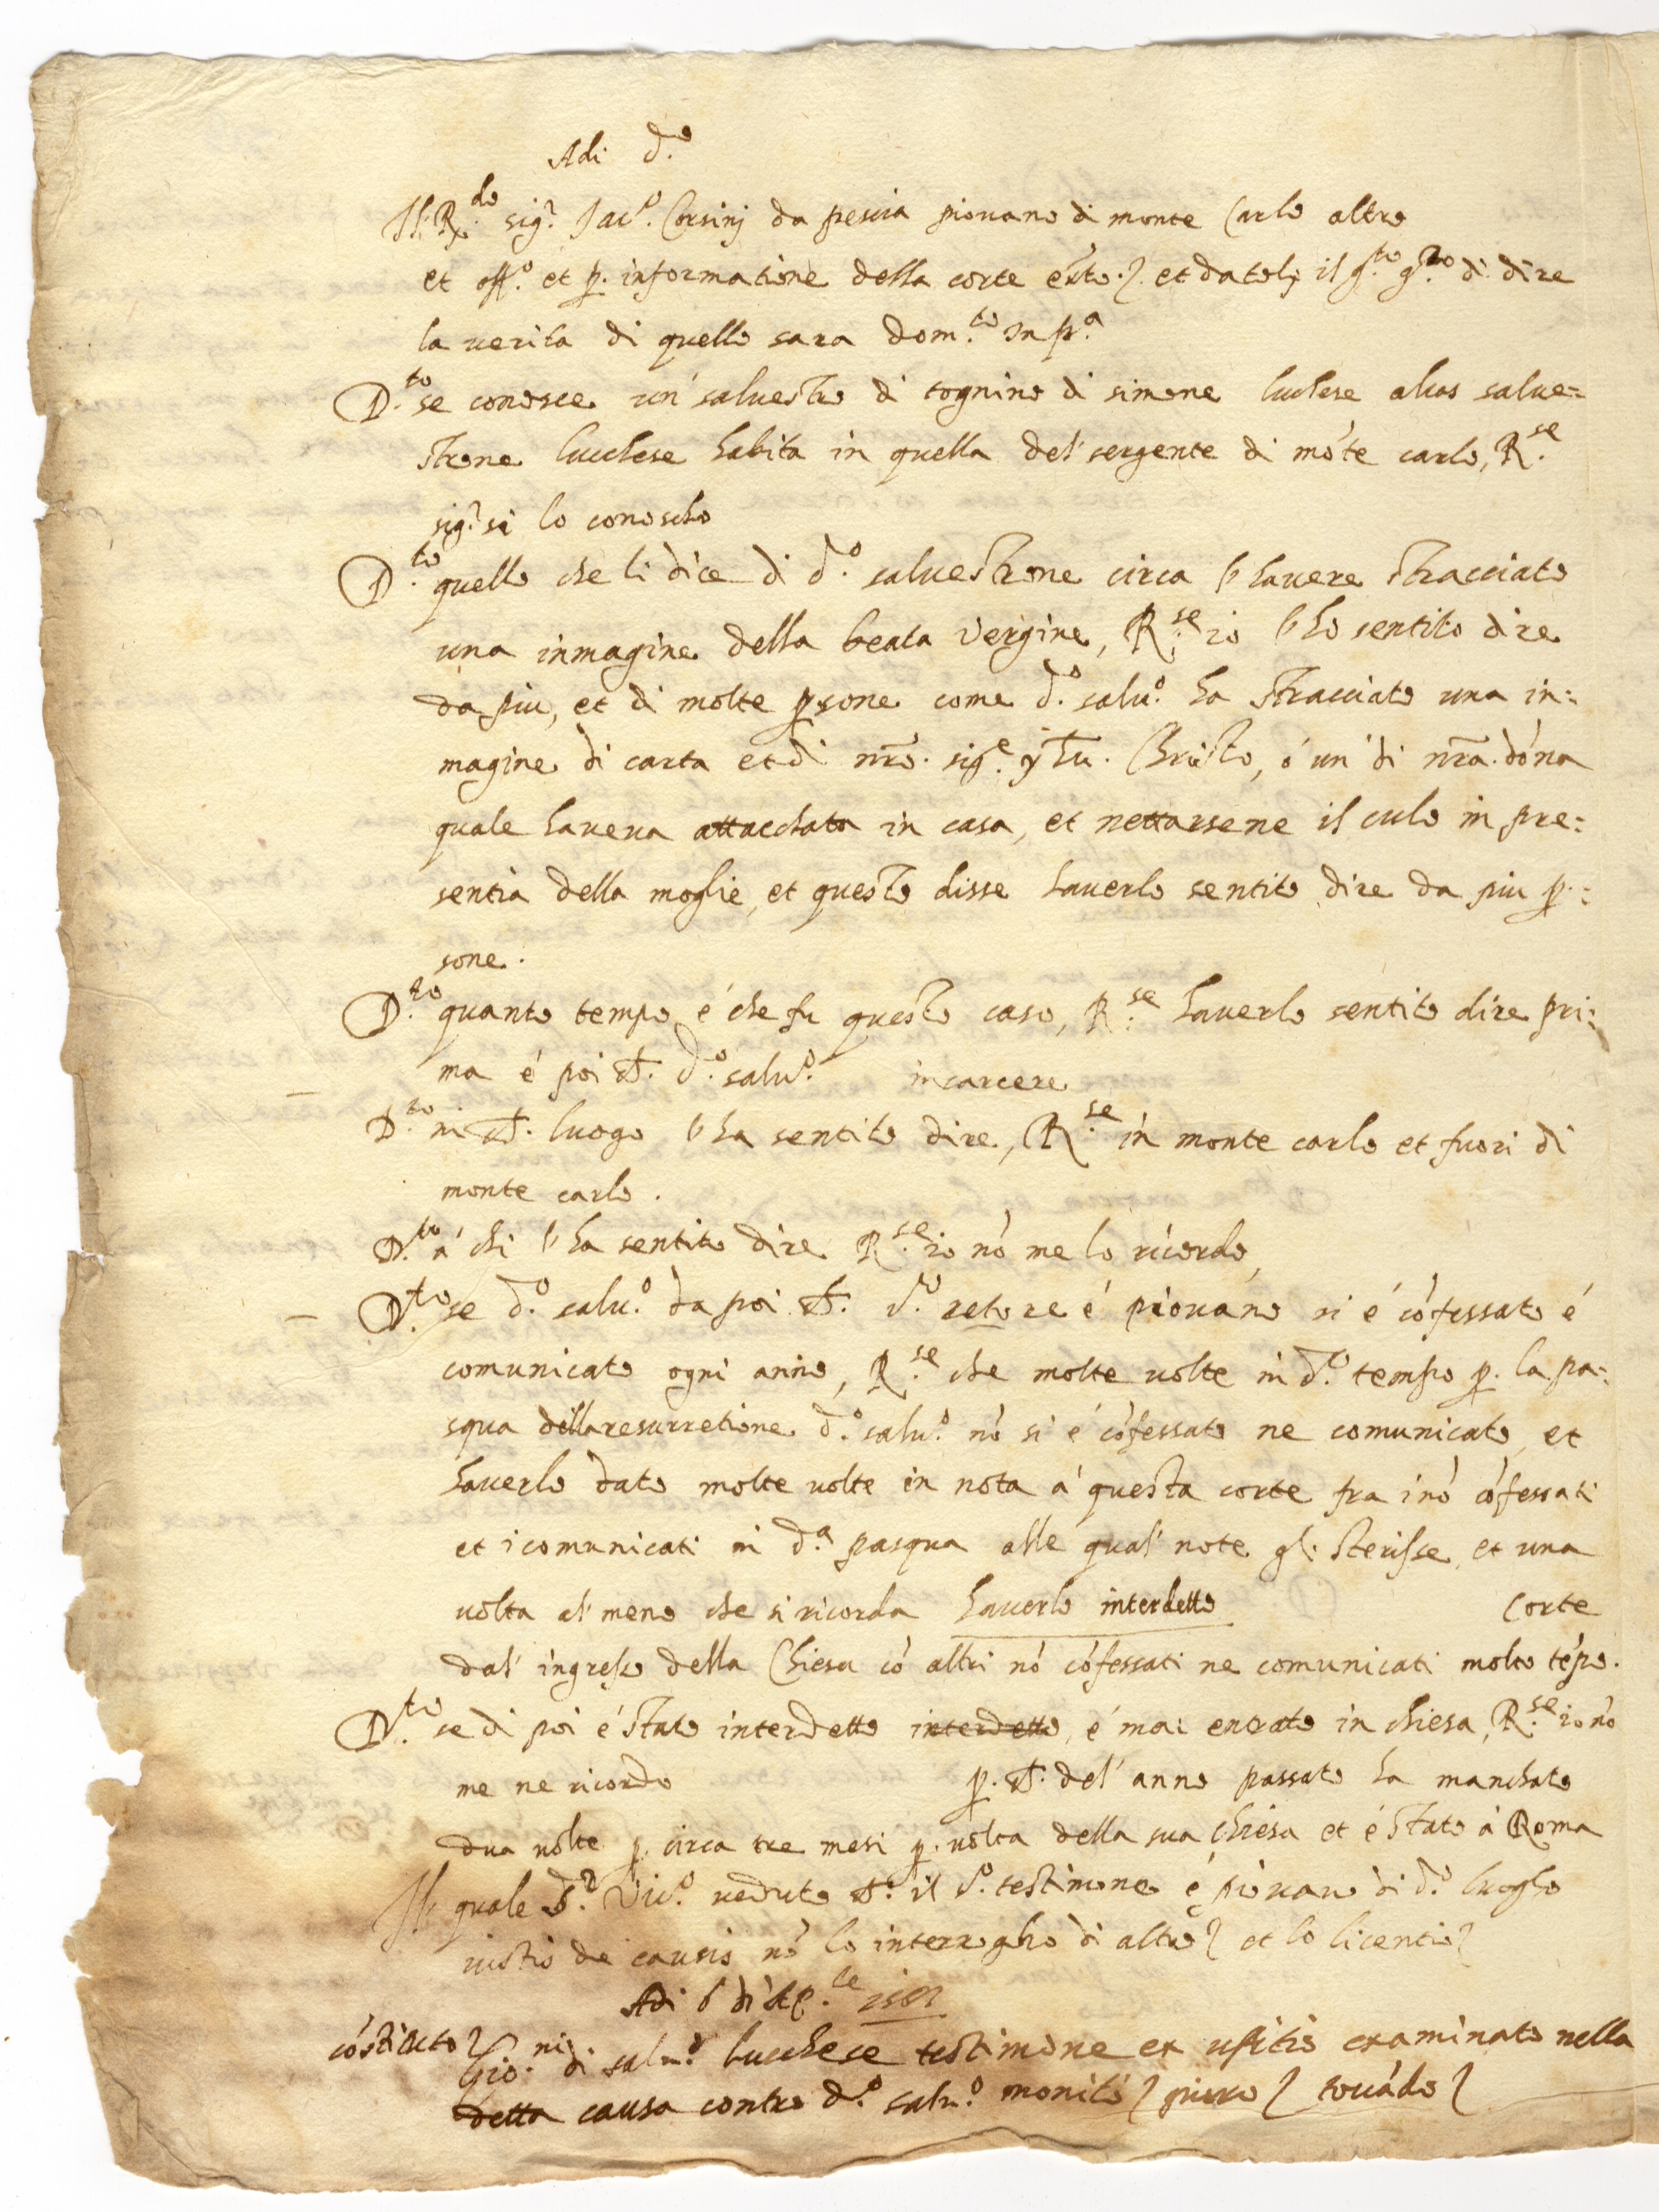 Adi d.o
Il R.do sig.r Jac.o Corsinj da pescia piouano di monte Carlo altro
et off.o et p. informatione della corte et datolj il di dire
la uerita di quello sara dom.to In p.a
D.to se conosce un' saluestro di tognino di simone luchese alias salue=
strone lucchese habita in quella del' sergente di mo'te carlo, R.se
sig.r si lo conoscho
D.to quello che li dice di d.o saluestrone circa l'hauere stracciato
una inmagine della beata Vergine, R.se io l'ho sentito dire
da piu, et di molte psone come d.o salu.o ha stracciato una in=
magine di carta et di nro. sig.e yhu. Christo, ó un' di nra. dóna
quale haueua attacchata in casa, et nettarsene il culo in pre=
sentia della moglie, et questo disse hauerlo sentito dire da piu p.=
sone.
D.to quanto tempo é che fu questo caso, R.se hauerlo sentito dire pri=
ma é poi d.o salu.o in carcere
D.to in luogo l'ha sentito dire, R.se in monte carlo et fuori di
monte carlo.
D.to a' chi l'ha sentito dire R.se io nó me lo ricordo,
D.to se d.o salu.o da poi d.o retore é piouano si é cófessato é
comunicato ogni anno, R.se che molte uolte in d.o tempo p. la pa=
squa della resurretione d.o salu.o nó si é cófessato ne comunicato, et
hauerlo dato molte uolte in nota a' questa corte fra i nó cófessati
et icomunicati in d.a pasqua alle qual' note gli sterisse, et una
uolta al' meno che si ricorda hauerlo interdetto corte
dal' ingresso della Chiesa có altri nó cófessati ne comunicati molto tépo.
D.to se di poi é stato interdetto interdetto, é mai entrato in chiesa, R.se io nó
me ne ricordo p. del' anno passato ha manchato
dua uolte p. circa tre mesi p. uolta della sua chiesa et é stato á Roma
Il quale S.r Vic.o ueduto il d.o testimone é piouano di d.o luogho
iustis de causis nó lo interrogho di altro et lo licentio
Adi 6 di
cóstituto Gio.ni di salu.o lucchese testimone ex ufitio examinato nella
detta causa contro d.o salu.o monito giuro tocádo